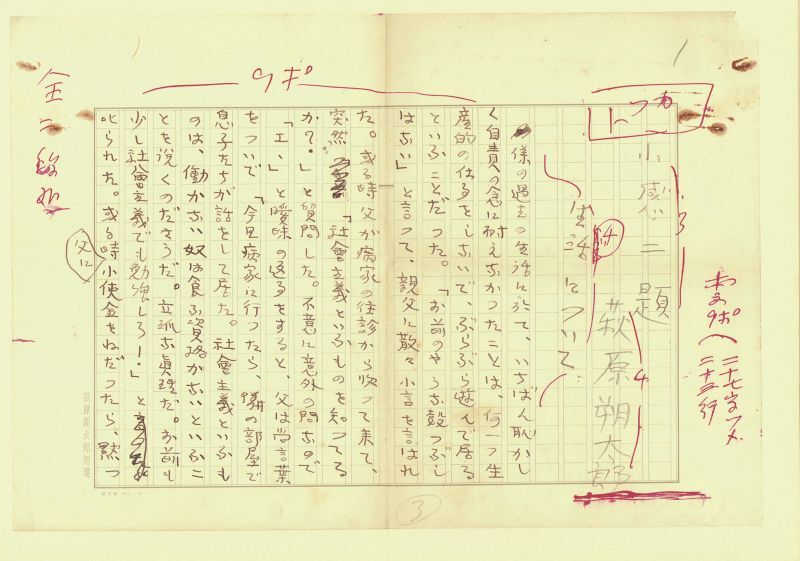 カット
小感二題
3
萩原朔太郎
4
生活について
僕の過去の生活に於て、いちばん恥かし
く自責の念に耐えなかつたことは、何一つ生
産的の仕事をしないで、ぶらぶら遊んで居る
といふことだつた。「お前のやうな穀つぶし
はない」と言つて、親父に散々小言を言はれ
た。或る時父が病家の往診から帰つて来て、
突然「社會主義といふものを知つてる
か?」と質問した。不意に意外の問なので
「エヽ」と曖昧の返事をすると、父は尚言葉
をついで「今日病家に行つたら、隣の部屋で
息子たちが話をして居た。社會主義といふも
のは、働かない奴は食ふ資格がないといふこ
とを説くのださうだ。立派な眞理だ。お前も
少し社會主義でも勉強しろ!」と
叱られた。或る時父に小使金をねだつたら、黙つ
9ポ
二十七字アメ
二十五行
萩原朔太郎用箋
3